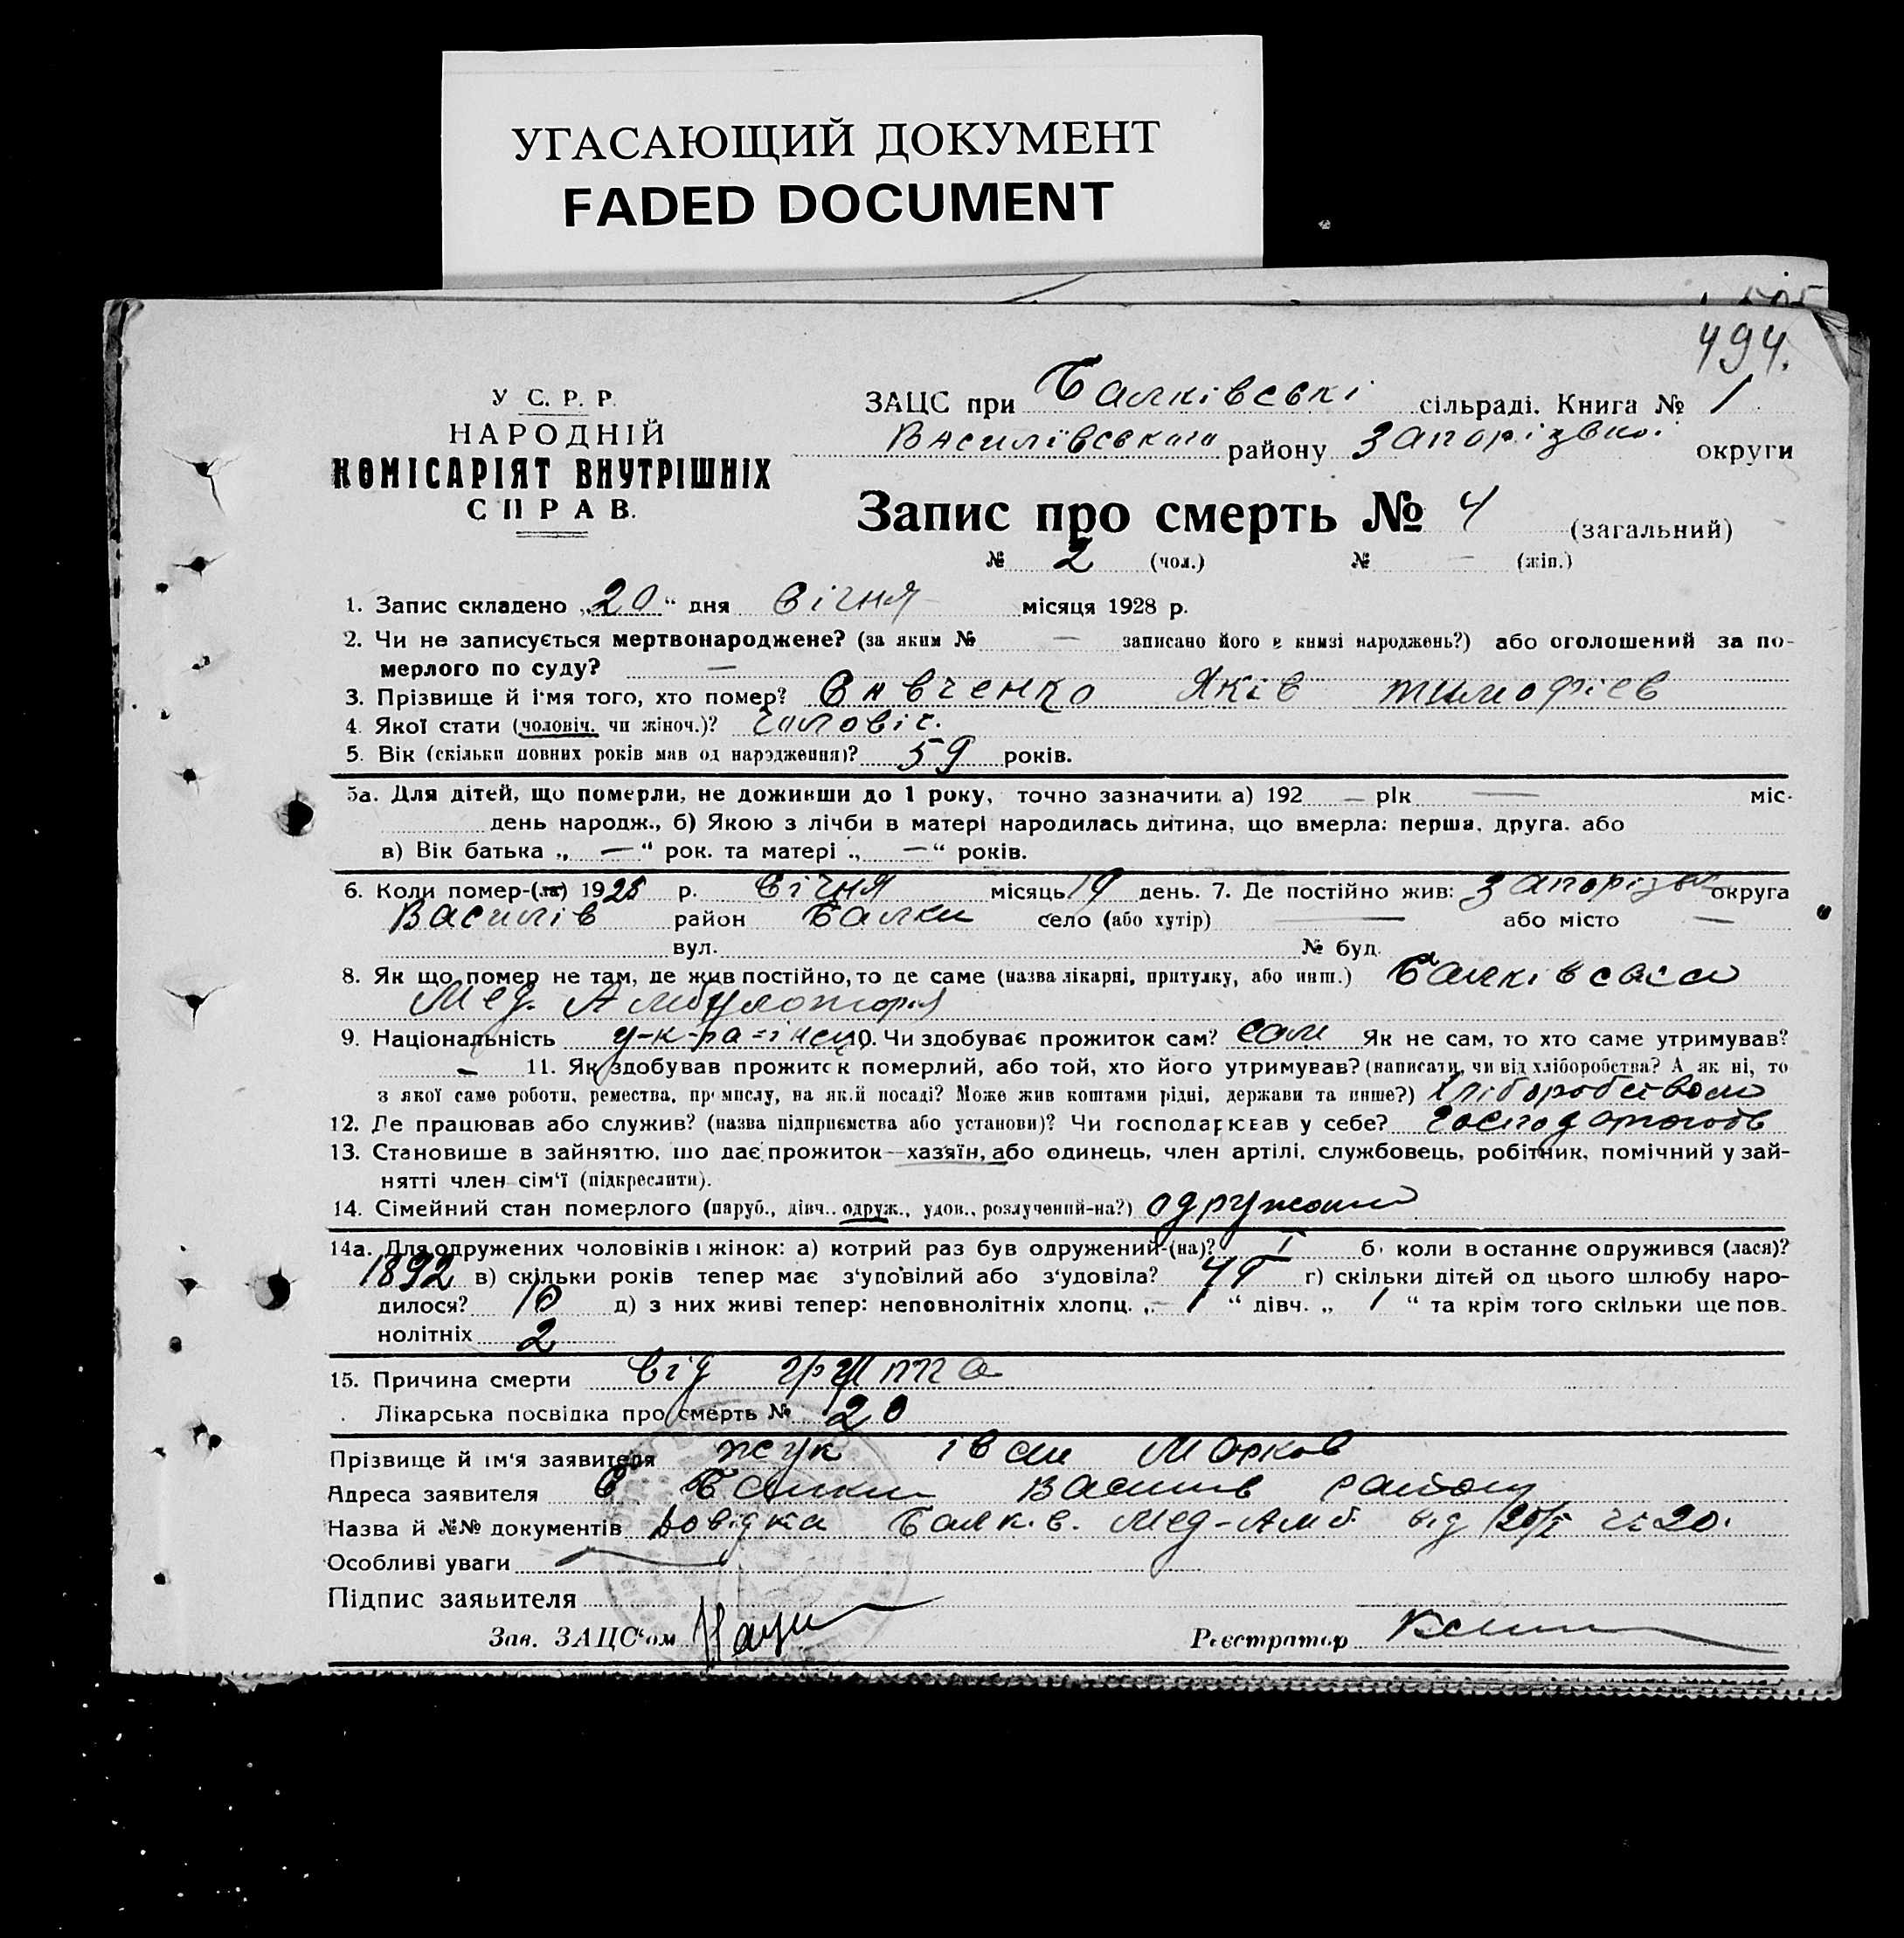 УГАСАЮЩИЙ ДОКУМЕНТ
FADED DOCUMENT
494.
У С. Р. Р.
НАРОДНІЙ
КОМІСАРІЯТ ВНУТРІШНІХ
СПРАВ.
ЗАЦС при Балківські сільраді. Книга № 1
Василівського району Запорізької округи
Запис про смерть № 4 (загальний)
№ 2 (чол.) № — (жін.)
1. Запис складено „20“ дня Січня місяця 1928 р.
2. Чи не записується мертвонароджене? (за яким № — записано його в книзі народжень?) або оголошений за по-
мерлого по суду? —
3. Прізвище й ім'я того, хто помер? Савченко Яків Тимофієв
4. Якої стати (чоловіч. чи жіноч.)? Чоловіч.
5. Вік (скільки повних років мав од народження)? 59 років.
5а. Для дітей, що померли, не доживши до 1 року, точно зазначити а) 192 — рік — міс.
день народж., б) Якою з лічби в матері народилась дитина, що вмерла: перша, друга, або
в) Вік батька „ — “ рок. та матері „ — “ років.
6. Коли помер-(ла) 1928 р. Січня місяць 19 день. 7. Де постійно жив: Запорізька округа
Василів район Балки село (або хутір) — або місто —
вул. № буд.
8. Як що помер не там, де жив постійно, то де саме (назва лікарні, притулку, або инш.) Балківська
Мед. Амбулоторія
9. Національність у-к-ра=їнец 10. Чи здобуває прожиток сам? сам Як не сам, то хто саме утримував?
— 11. Як здобував прожиток померлий, або той, хто його утримував? (написати, чи від хліборобства? А як ні, то
з якої саме роботи, ремества, промислу, на якій посаді? Може жив коштами рідні, держави та инше?) хліборобством
12. Де працював або служив? (назва підприємства або установи)? Чи господарював у себе?
13. Становище в зайняттю, що дає прожиток—хазяїн, або одинець, член артілі, службовець, робітник, помічний у зай-
нятті член сім'ї (підкреслити).
14. Сімейний стан померлого (паруб., дівч., одруж., удов., розлучений-на?) одружений
14а. Для одружених чоловіків і жінок: а) котрий раз був одружений-(на)? I б) коли востаннє одружився (лася)?
1892 в) скільки років тепер має з'удовілий або з'удовіла? г) скільки дітей од цього шлюбу наро-
дилося? 10 д) з них живі тепер: неповнолітніх хлопц. „ 1 “ дівч. „ 1 “ та крім того скільки ще пов-
нолітніх 2
15. Причина смерти від гриппа
Лікарська посвідка про смерть № 20
Прізвище й ім'я заявителя Жук Іван Марков
Адреса заявителя С Балки Василів району
Назва й №№ документів Довідка Балк.в. Мед-Амб. від 20/I ч 20.
Особливі уваги
Підпис заявителя
Зав. ЗАЦС'ом
Реєстратор